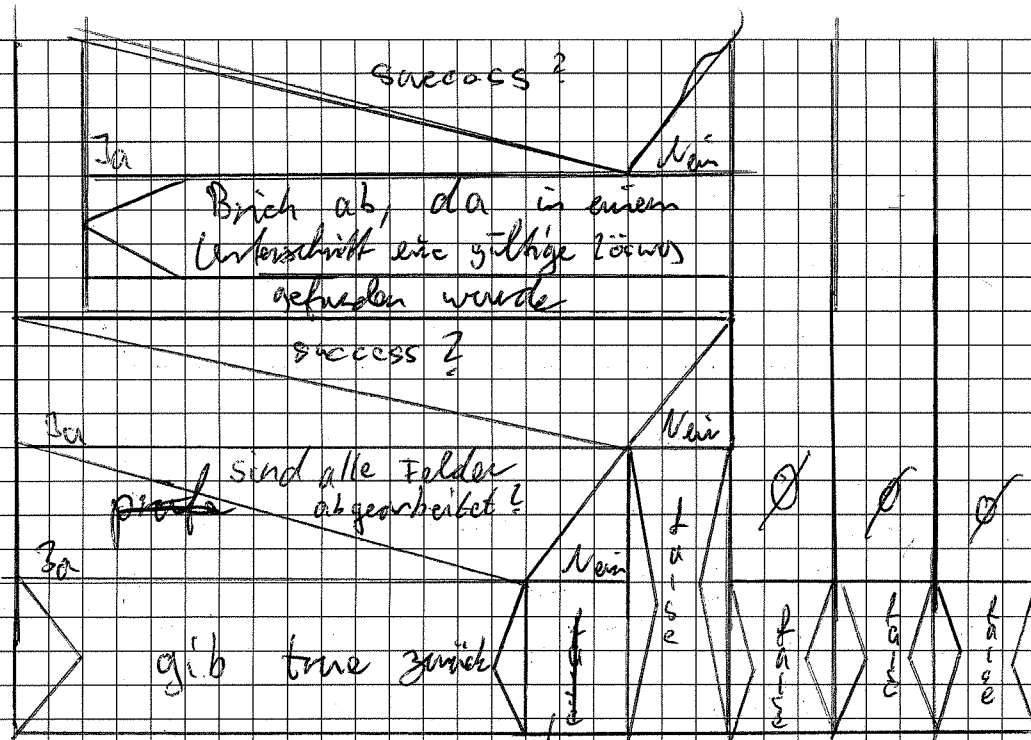 success ?
Ja
Nein
Brich ab, da in einem
Unterschritt eine gültige Lösung
gefunden wurde
success ?
Ja
Nein
sind alle Felder
abgearbeitet ?
Ja
Nein
false
Ø Ø Ø
gib true zurück
false
false
false